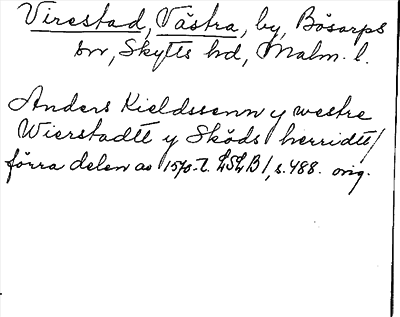 Virestad, Västra, by, Bösarps
sn, Skytts hd, Malm. l.
Anders Kieldssenn y westre
Wierstadtt y Sköds herridtt/
förra delen av 1570-t. LSLB1, s. 488. orig.